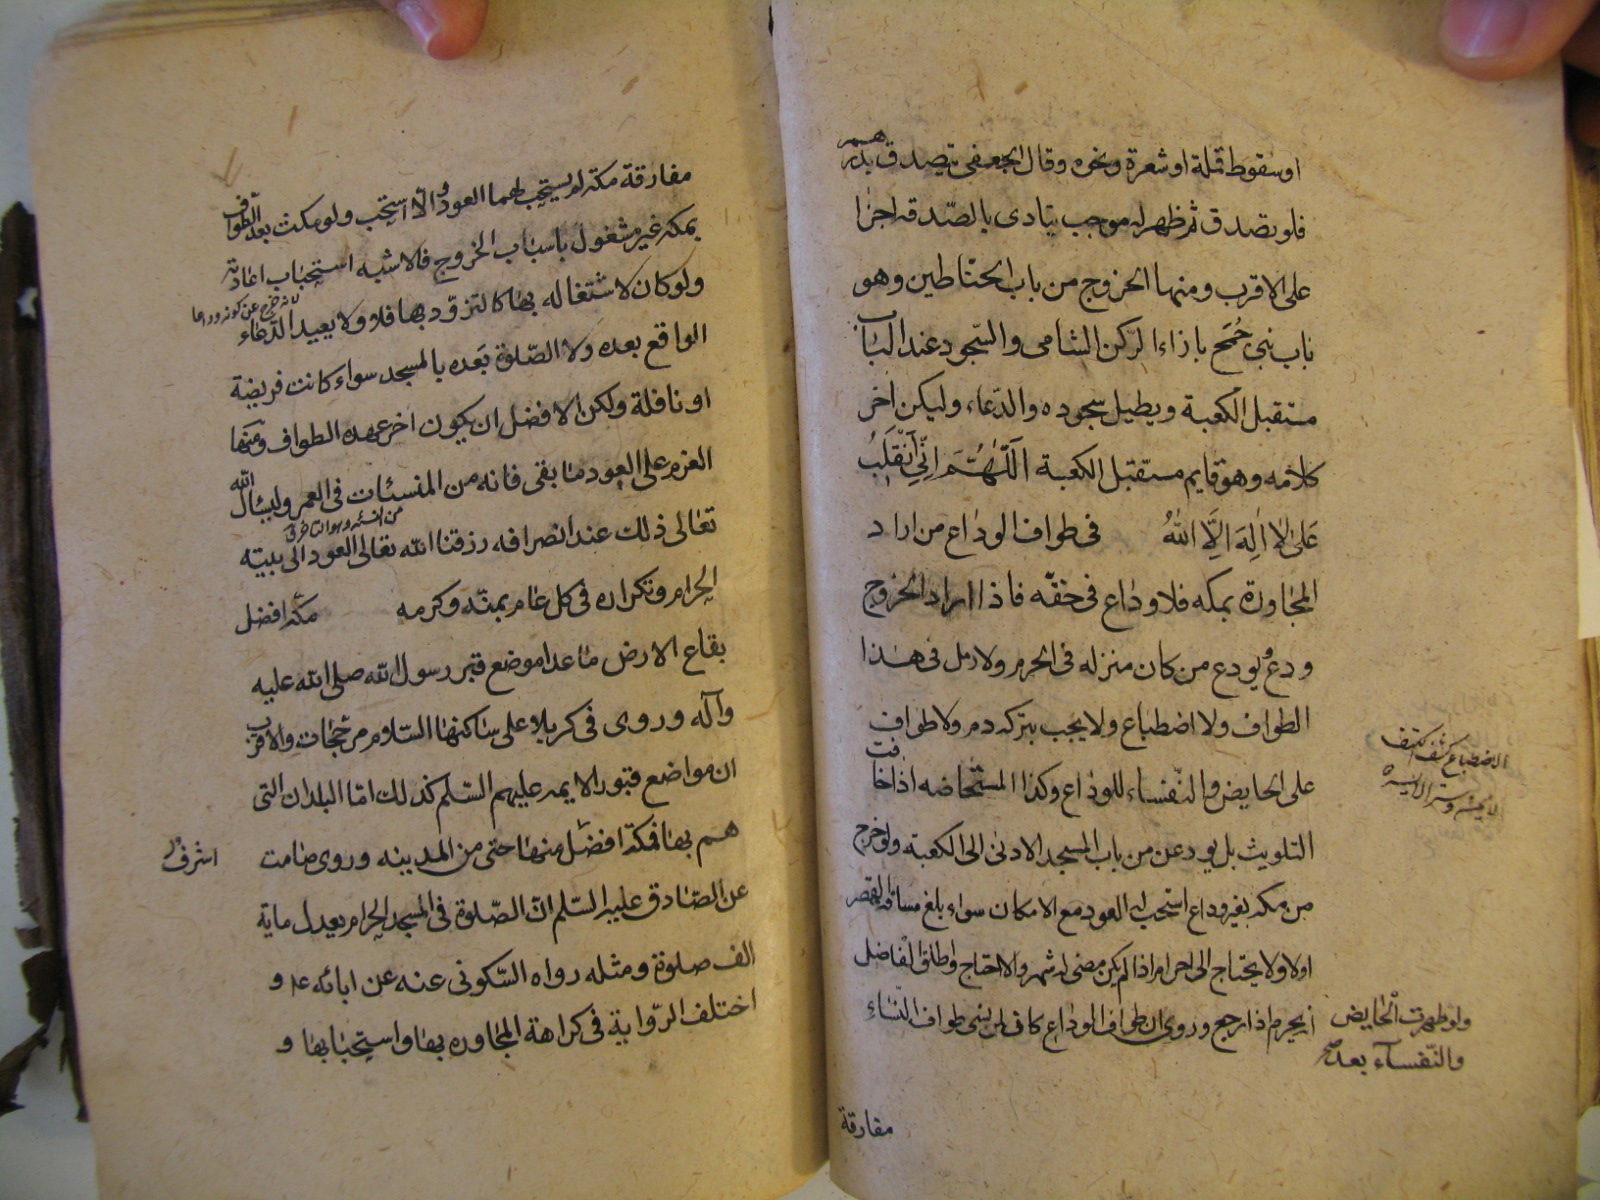 او سقوط قملة او شعرة ونحوه وقال الجعفى يتصدق بدرهم
فلو تصدق ثم ظهر له موجب يتادى بالصّدقه اجزا
على الاقرب ومنها الخروج من باب الحناطين وهو
باب بنى جُمَح بازاء الركن الشامى والسّجود عند الباب
مستقبل الكعبة ويطيل سجوده والدّعاء وليكن اخر
كلامه وهو قايم مستقبل الكعبة اَللّهُمَّ اِنِّي اَنْقَلِبُ
عَلى لا اِلهَ اِلَّا اللهُ في طواف الوداع من اراد
المجاورة بمكه فلا وداع فى حقّه فاذا اراد الخروج
ودع ويودع من كان منزله فى الحرم ولا رمل فى هذا
الطواف ولا اضطباع ولا يجب بتركه دم ولا طواف
على الحايض والنّفساء للوداع وكذا المستحاضه اذا خافت
التلويث بل يودعن من باب المسجد الادنى الى الكعبة ولو خرج
من مكه بغير وداع استحب له العود مع الامكان سواء بلغ مسافة القصر
اولا ولا يحتاج الى احرام اذا لم يكن مضى له شهر والا احتاج واطلق الفاضل
انه يحرم اذا رجع وروى ان طواف الوداع كاف لمن نسى طواف النّساء
الاضطباع كشف الكتف
الايمن وستر الايسر
ولو طهرت الحايض
والنّفسآء بعد
مفارقة
مفارقة مكة لم يستحب لهما العود والّا استحب ولو مكث بعد الطواف
بمكه غير مشغول باسباب الخروج فالاشبه استحباب اعادته
ولو كان لاشتغاله بها كالتزود بها فلا ولا يعيد الدّعاء
لانه خرج عن كونه وداعا
الواقع بعده ولا الصّلوة بَعده بالمسجد سواء كانت فريضة
او نافلة ولكن الافضل ان يكون اخر عهده الطواف ومنها
العزم على العود ما بقى فانه من المنسئات فى العمر وليسئال الله
تعالى ذلك عند انصرافه رزقنا الله تعالى العود الى بيته
الحرام وتكراره فى كل عام بمنّه وكرمه مكه افضل
بقاع الارض ما عدا موضع قبر رسول الله صلى الله عليه
وآله وروى فى كربلا على ساكنها السّلام مرجّحات والاقرب
ان مواضع قبور الايمه عليهم السّلم كذلك امّا البلدان التى
هم بها فمكة افضل منها حتى من المدينه وروى صامت
اشرف
عن الصّادق عليه السّلم انّ الصّلوة فى المسجد الحرام يعدل ماية
الف صلوة ومثله رواه السّكونى عنه عن ابائه ع و
اختلف الرّواية فى كراهة المجاوره بها واستحبابها و